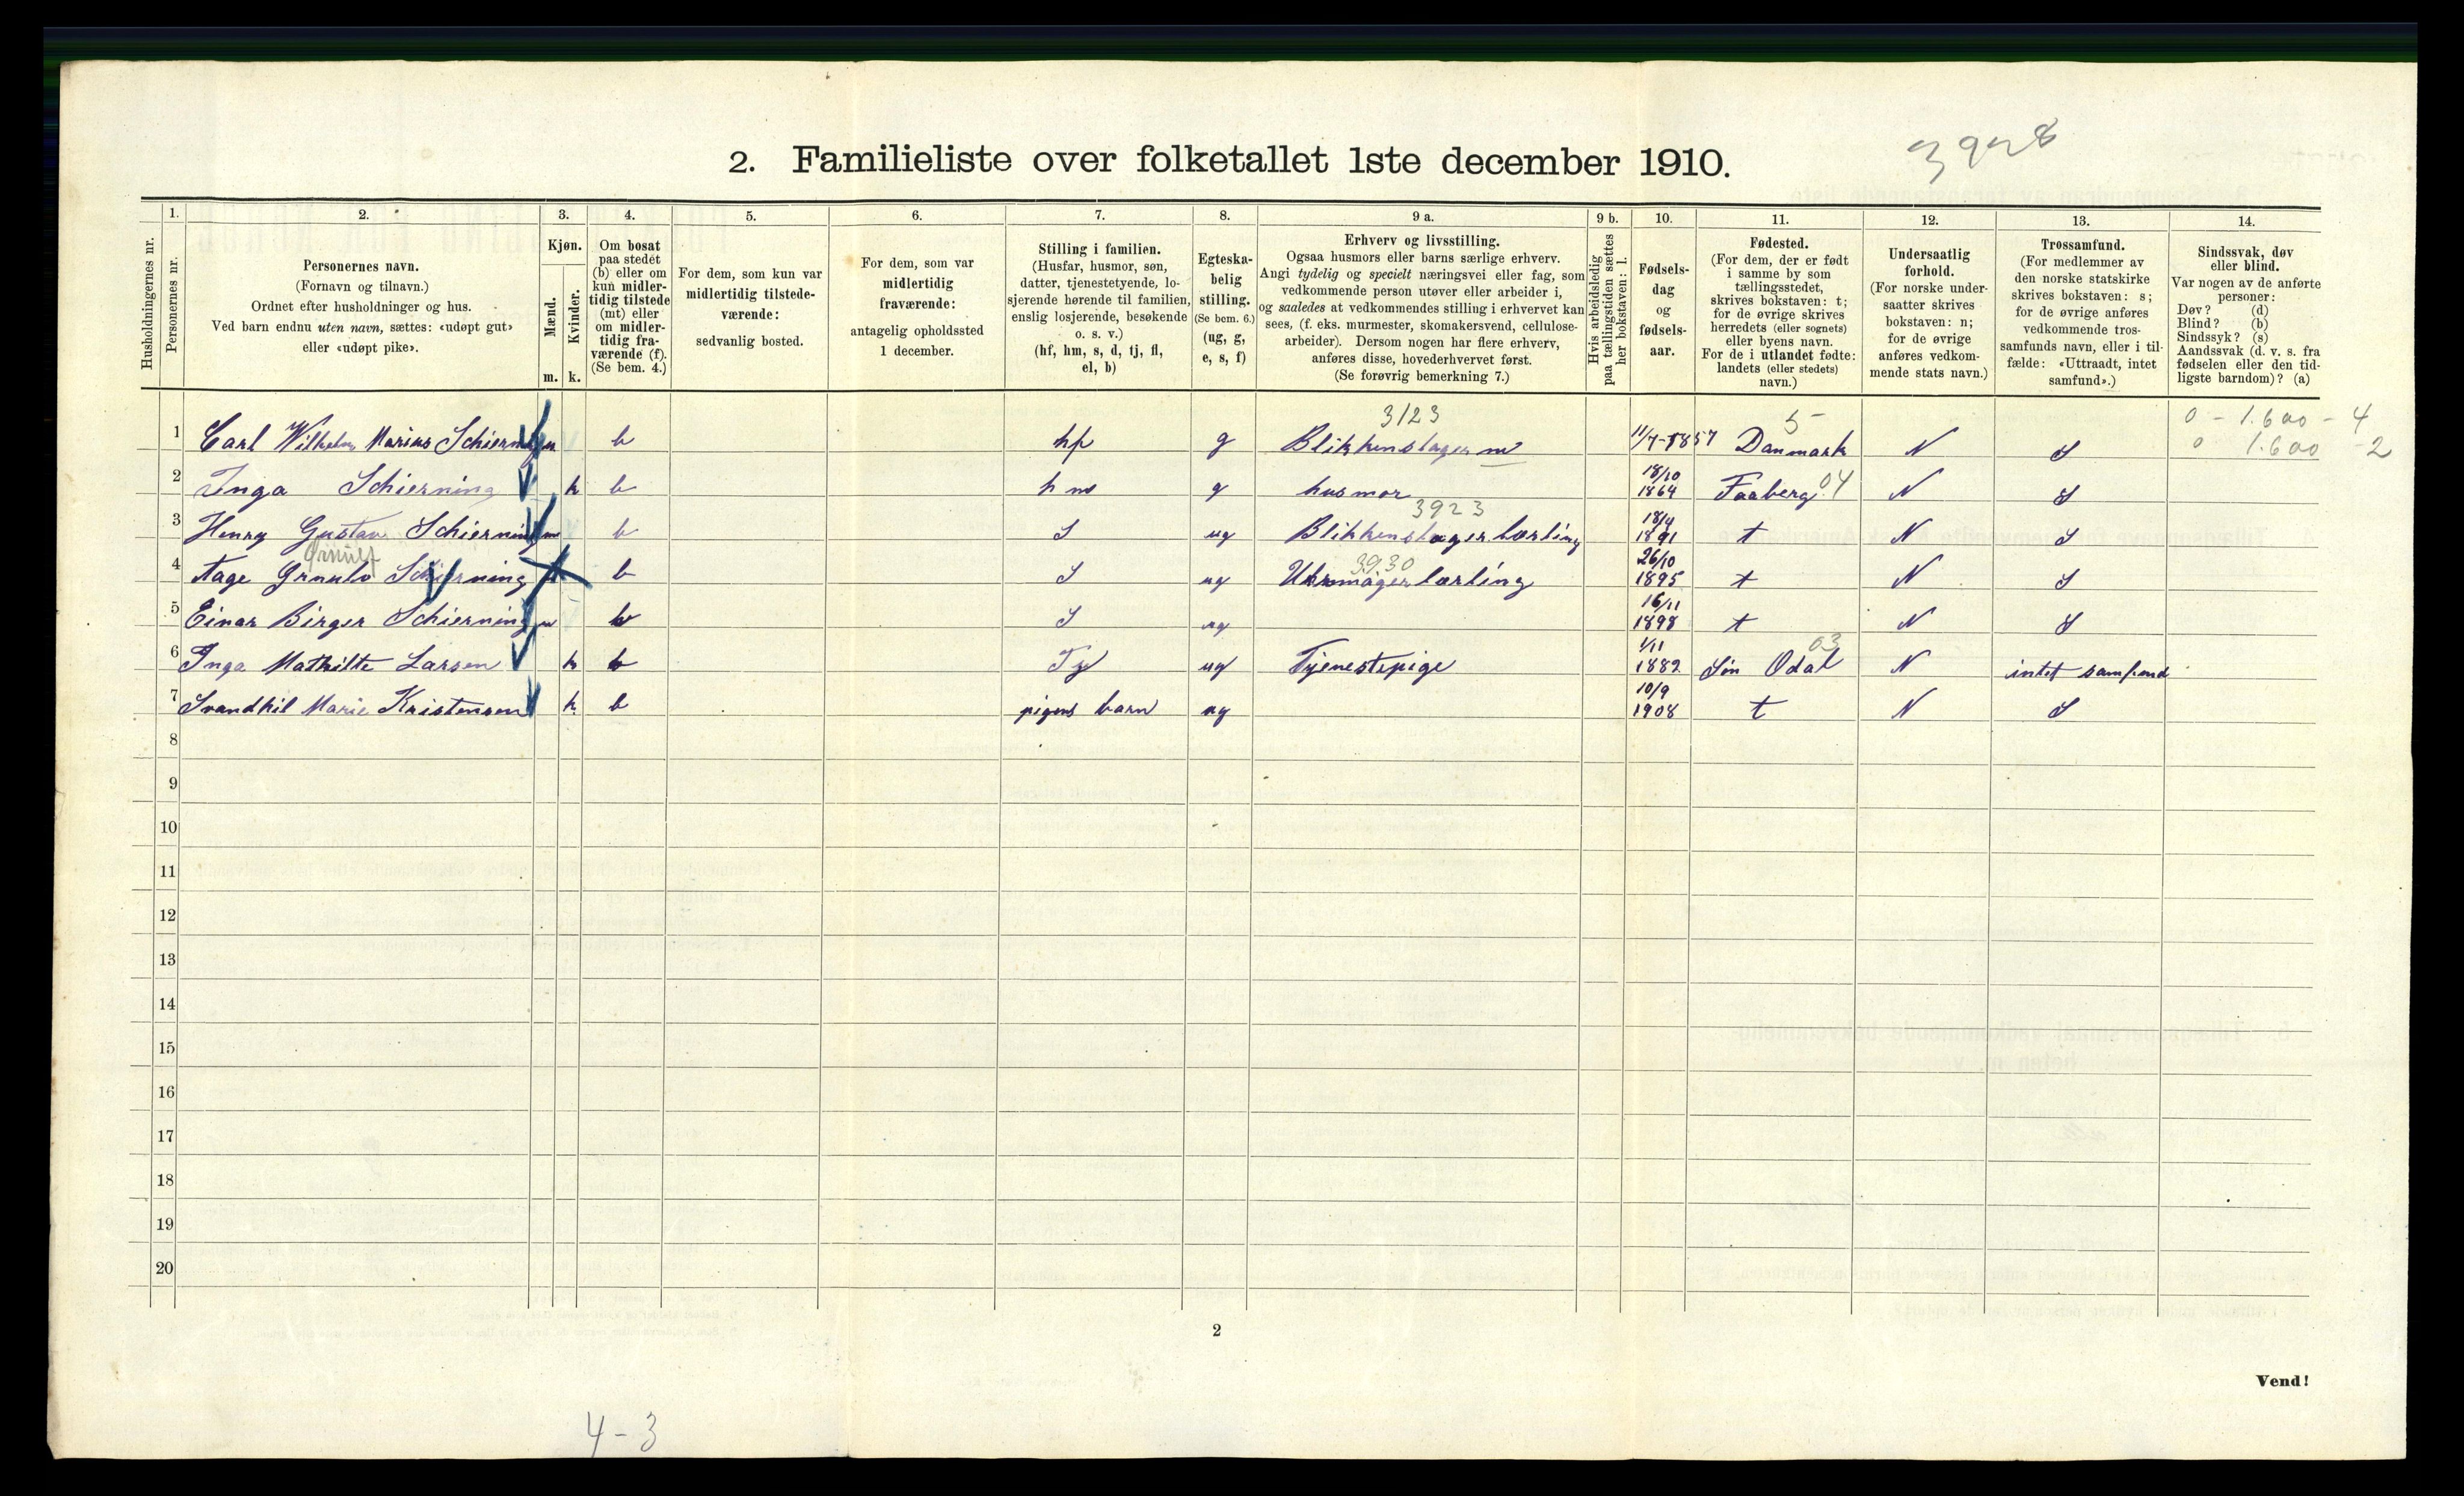 3928
2. Familieliste over folketallet 1ste december 1910.
Husholdningernes nr.
1.
Personernes nr.
2.
Personernes navn.
(Fornavn og tilnavn.)
Ordnet efter husholdninger og hus.
Ved barn endnu uten navn, sættes: «udøpt gut»
eller «udøpt pike».
3.
Kjøn.
Mænd.
Kvinder.
m. k.
4.
Om bosat
paa stedet
(b) eller om
kun midler-
tidig tilstede
(mt) eller
om midler-
tidig fra-
værende (f).
(Se bem. 4.)
5.
For dem, som kun var
midlertidig tilstede-
værende:
sedvanlig bosted.
6.
For dem, som var
midlertidig
fraværende:
antagelig opholdssted
1 december.
7.
Stilling i familien.
(Husfar, husmor, søn,
datter, tjenestetyende, lo-
sjerende hørende til familien,
enslig losjerende, besøkende
o. s. v.)
(hf, hm, s, d, tj, fl,
el, b)
8.
Egteska-
belig
stilling.
(Se bem. 6.)
(ug, g,
e, s, f)
9 a.
Erhverv og livsstilling.
Ogsaa husmors eller barns særlige erhverv.
Angi tydelig og specielt næringsvei eller fag, som
vedkommende person utøver eller arbeider i,
og saaledes at vedkommendes stilling i erhvervet kan
sees, (f. eks. murmester, skomakersvend, cellulose-
arbeider). Dersom nogen har flere erhverv,
anføres disse, hovederhvervet først.
(Se forøvrig bemerkning 7.)
9 b.
Hvis arbeidsledig
paa tællingstiden sættes
her bokstaven: l.
10.
Fødsels-
dag
og
fødsels-
aar.
11.
Fødested.
(For dem, der er født
i samme by som
tællingsstedet,
skrives bokstaven: t;
for de øvrige skrives
herredets (eller sognets)
eller byens navn.
For de i utlandet fødte:
landets (eller stedets)
navn.)
12.
Undersaatlig
forhold.
(For norske under-
saatter skrives
bokstaven: n;
for de øvrige
anføres vedkom-
mende stats navn.)
13.
Trossamfund.
(For medlemmer av
den norske statskirke
skrives bokstaven: s;
for de øvrige anføres
vedkommende tros-
samfunds navn, eller i til-
fælde: «Uttraadt, intet
samfund».)
14.
Sindssvak, døv
eller blind.
Var nogen av de anførte
personer:
Døv? (d)
Blind? (b)
Sindssyk? (s)
Aandssvak (d. v. s. fra
fødselen eller den tid-
ligste barndom)? (a)
3123 5 0 - 1.600 - 4
1 Carl Wilhelm Marius Schierning m b hf g Blikkenslager m 11/7-1857 Danmark N S 0 1.600 - 2
2 Inga Schierning k b hm g husmor 18/10 1864 Faaberg 04 N S
3923
3 Henry Gustav Schierning m b S ug Blikkenslager lærling 18/4 1891 t N S
Ørnulf 3930
4 Aage Grnulv Schierning b S ug Uhrmager lærling 26/10 1895 t N S
5 Einar Birger Schierning m b S ug 16/11 1898 t N S
03
6 Inga Mathilte Larsen k b Tj ug Tjenestepige 1/11 1882 Søn Odal N intet samfund
7 Svandhil Marie Kristensen k b pigens barn ug 10/9 1908 t N S
8
9
10
11
12
13
14
15
16
17
18
19
20
2
Vend!
4 - 3